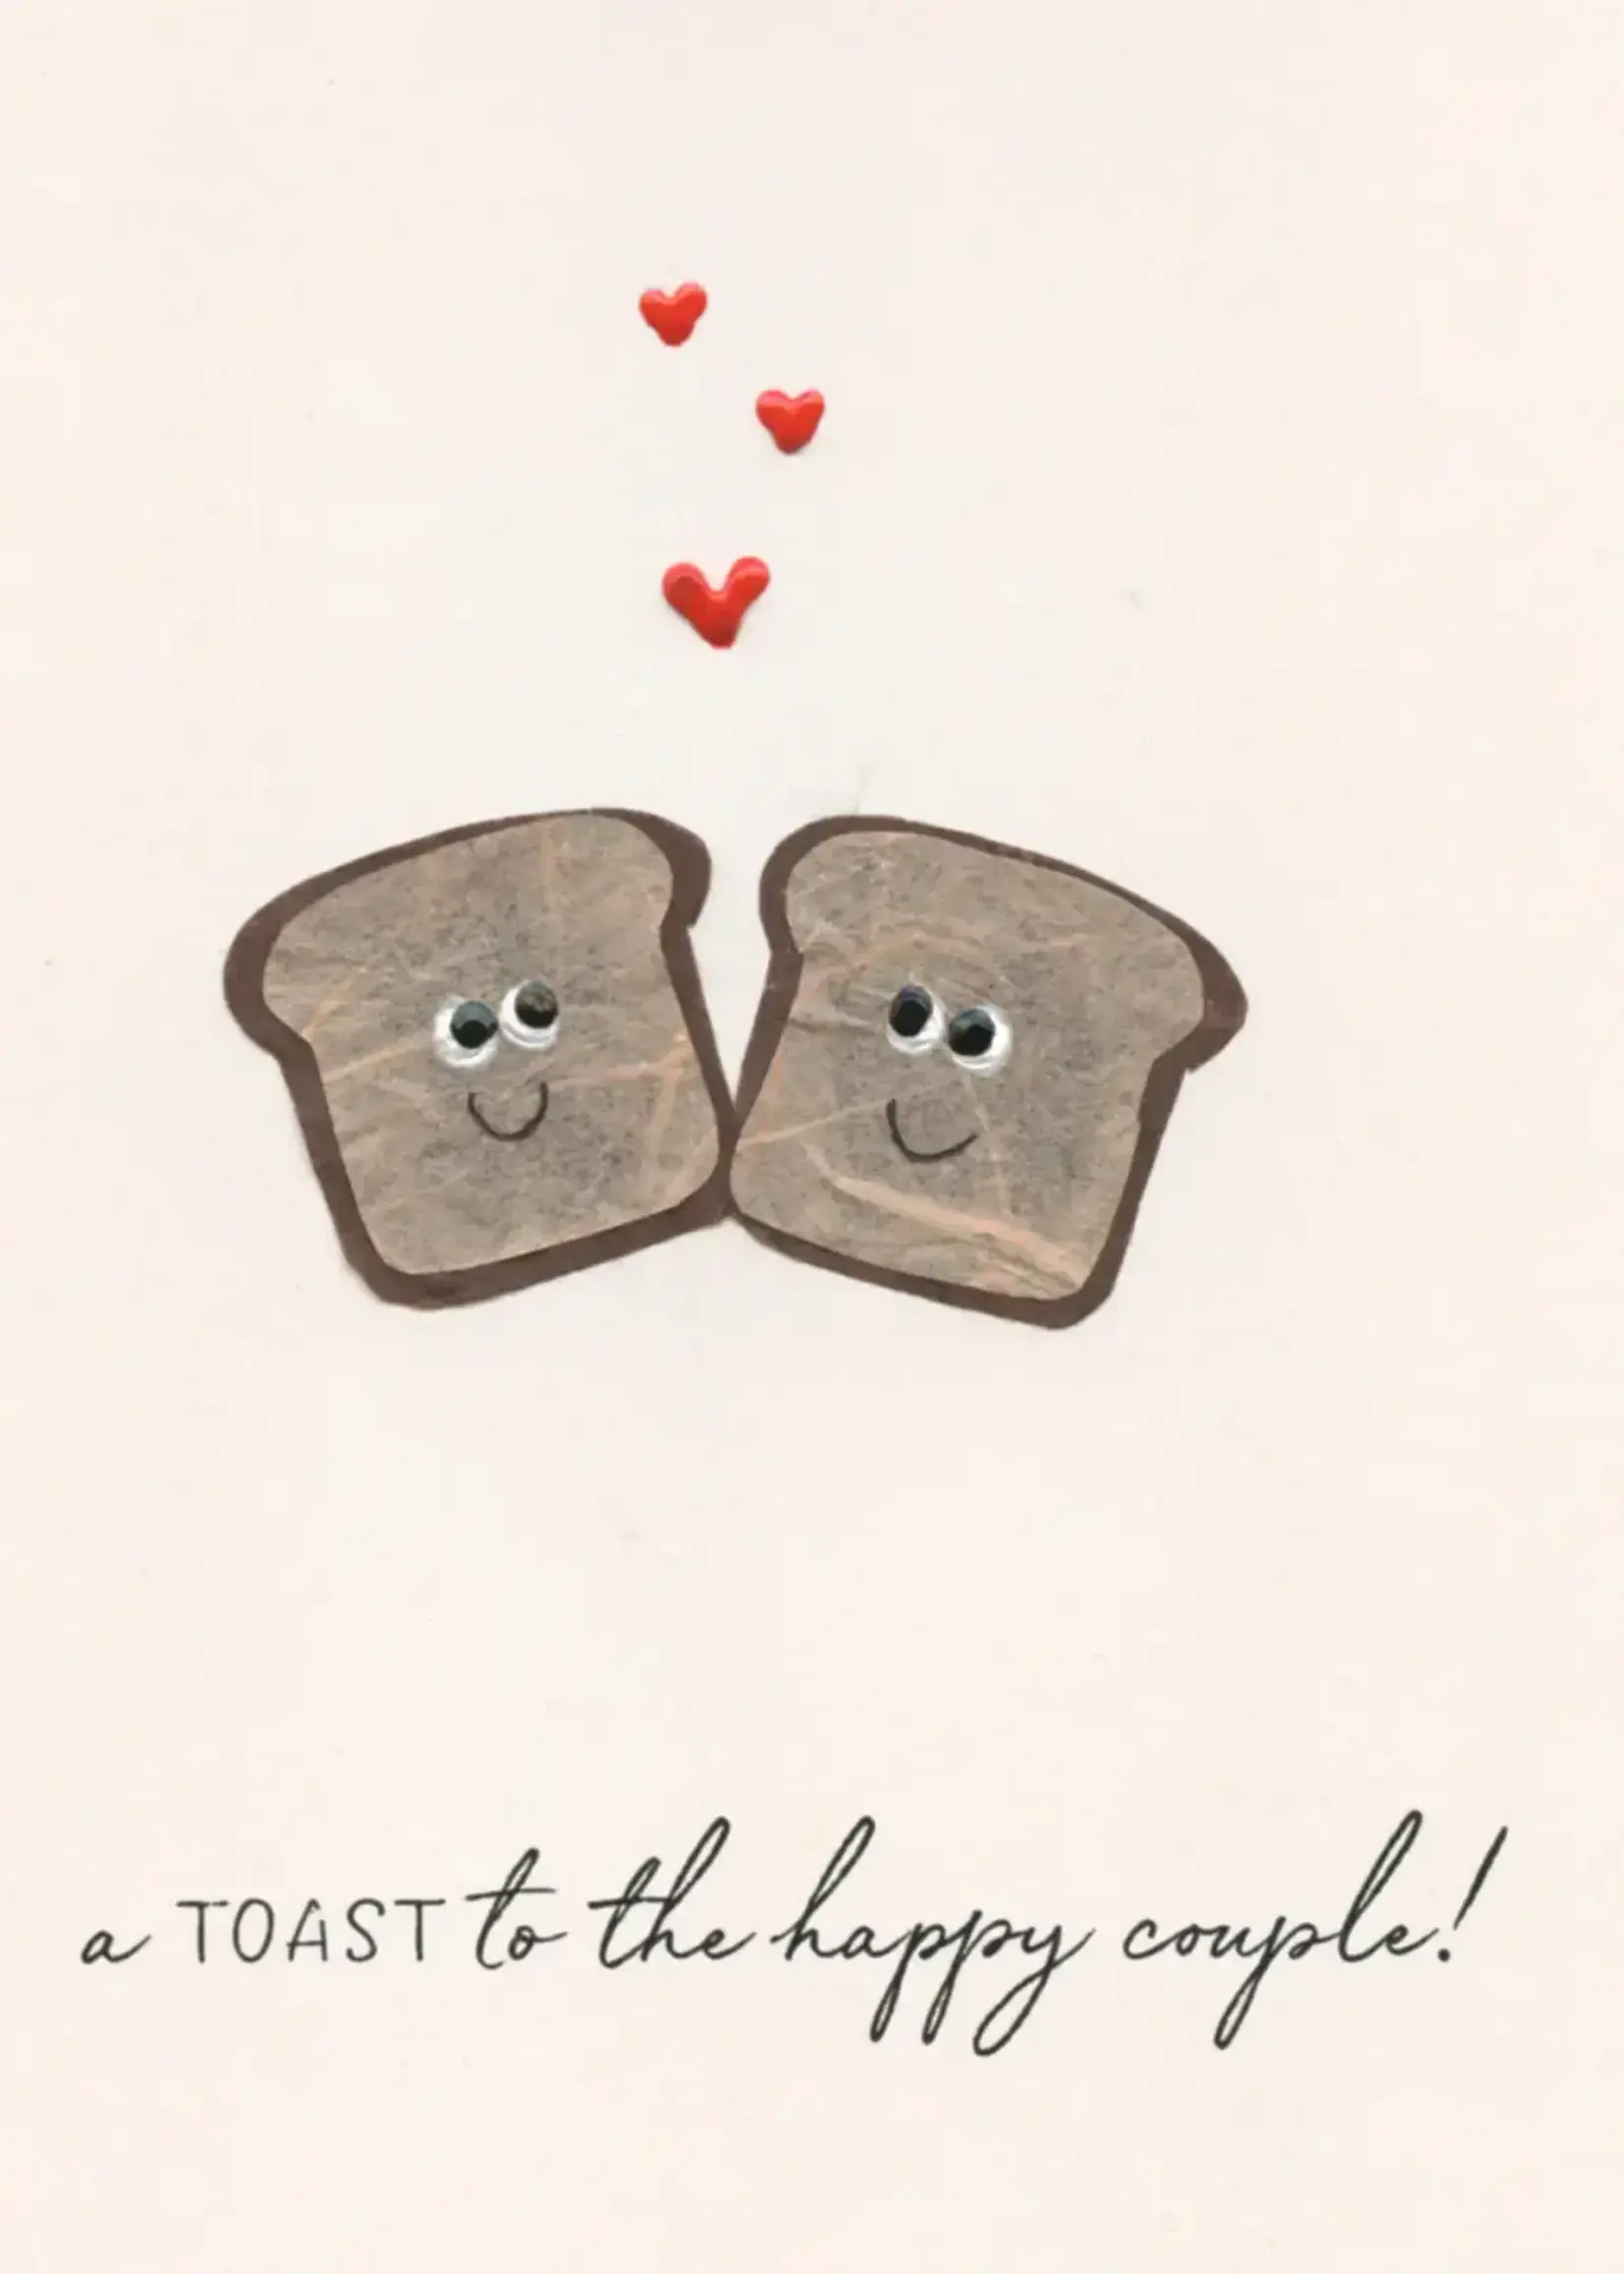 a TOAST to the happy couple!